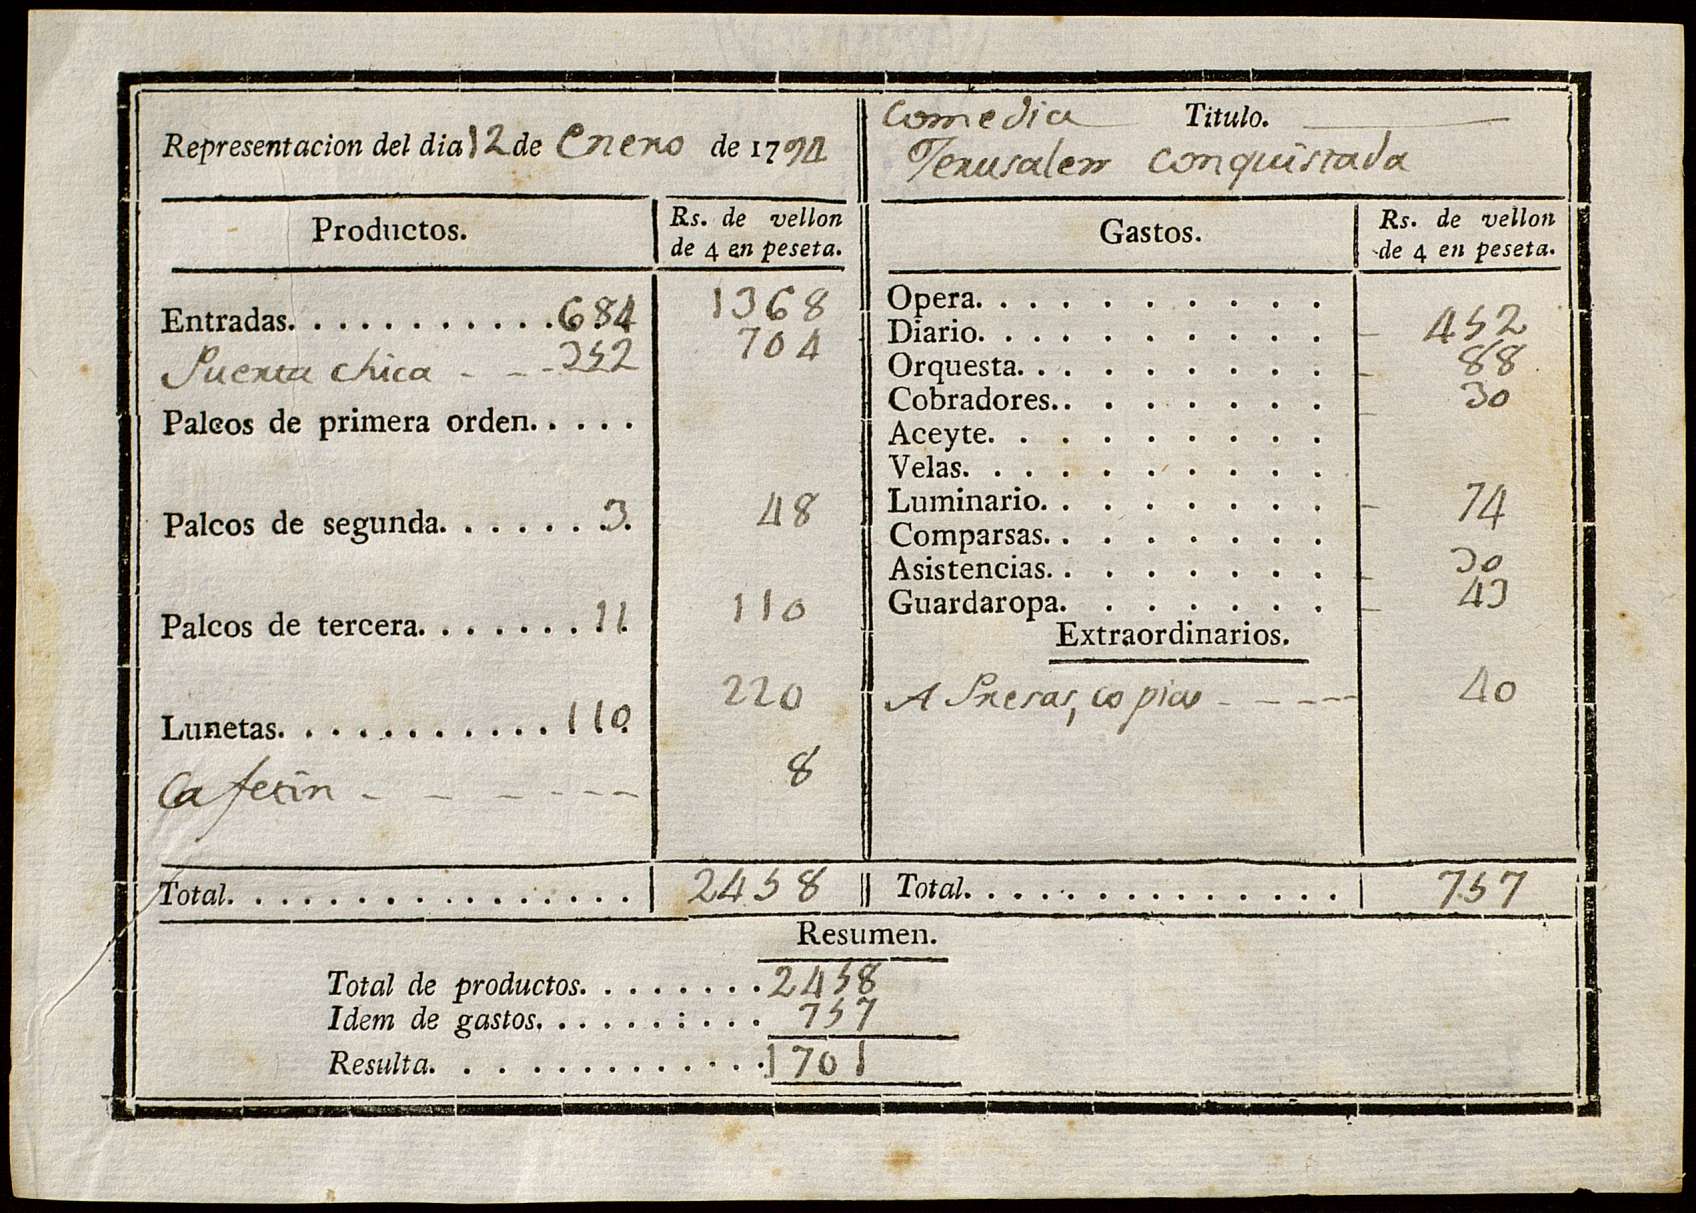 Representacion del dia 12 de Enero de 1794
Comedia Titulo.
Jerusalem conquistada
Productos. Rs. de vellon de 4 en peseta.
Entradas. . . . . . . . . . . 684 1368
Puerta chica - - - 352 704
Palcos de primera orden. . . . .
Palcos de segunda. . . . . . . 3. 48
Palcos de tercera. . . . . . . 11. 110
Lunetas. . . . . . . . . . . 110. 220
Cafetin - - - - - - - 8
Total. . . . . . . . . . . . . . . . 2458
Gastos. Rs. de vellon de 4 en peseta.
Opera. . . . . . . . . . .
Diario. . . . . . . . . . . - 452
Orquesta. . . . . . . . . . - 88
Cobradores. . . . . . . . - 30
Aceyte. . . . . . . . . .
Velas. . . . . . . . . . .
Luminario. . . . . . . . . - 74
Comparsas. . . . . . . . .
Asistencias. . . . . . . . - 30
Guardaropa. . . . . . . - 43
Extraordinarios.
A Presas, copias - - - - - 40
Total. . . . . . . . . . . . . . 757
Resumen.
Total de productos. . . . . . . . 2458
Idem de gastos. . . . . . : . . . 757
Resulta. . . . . . . . . . . . . 1701